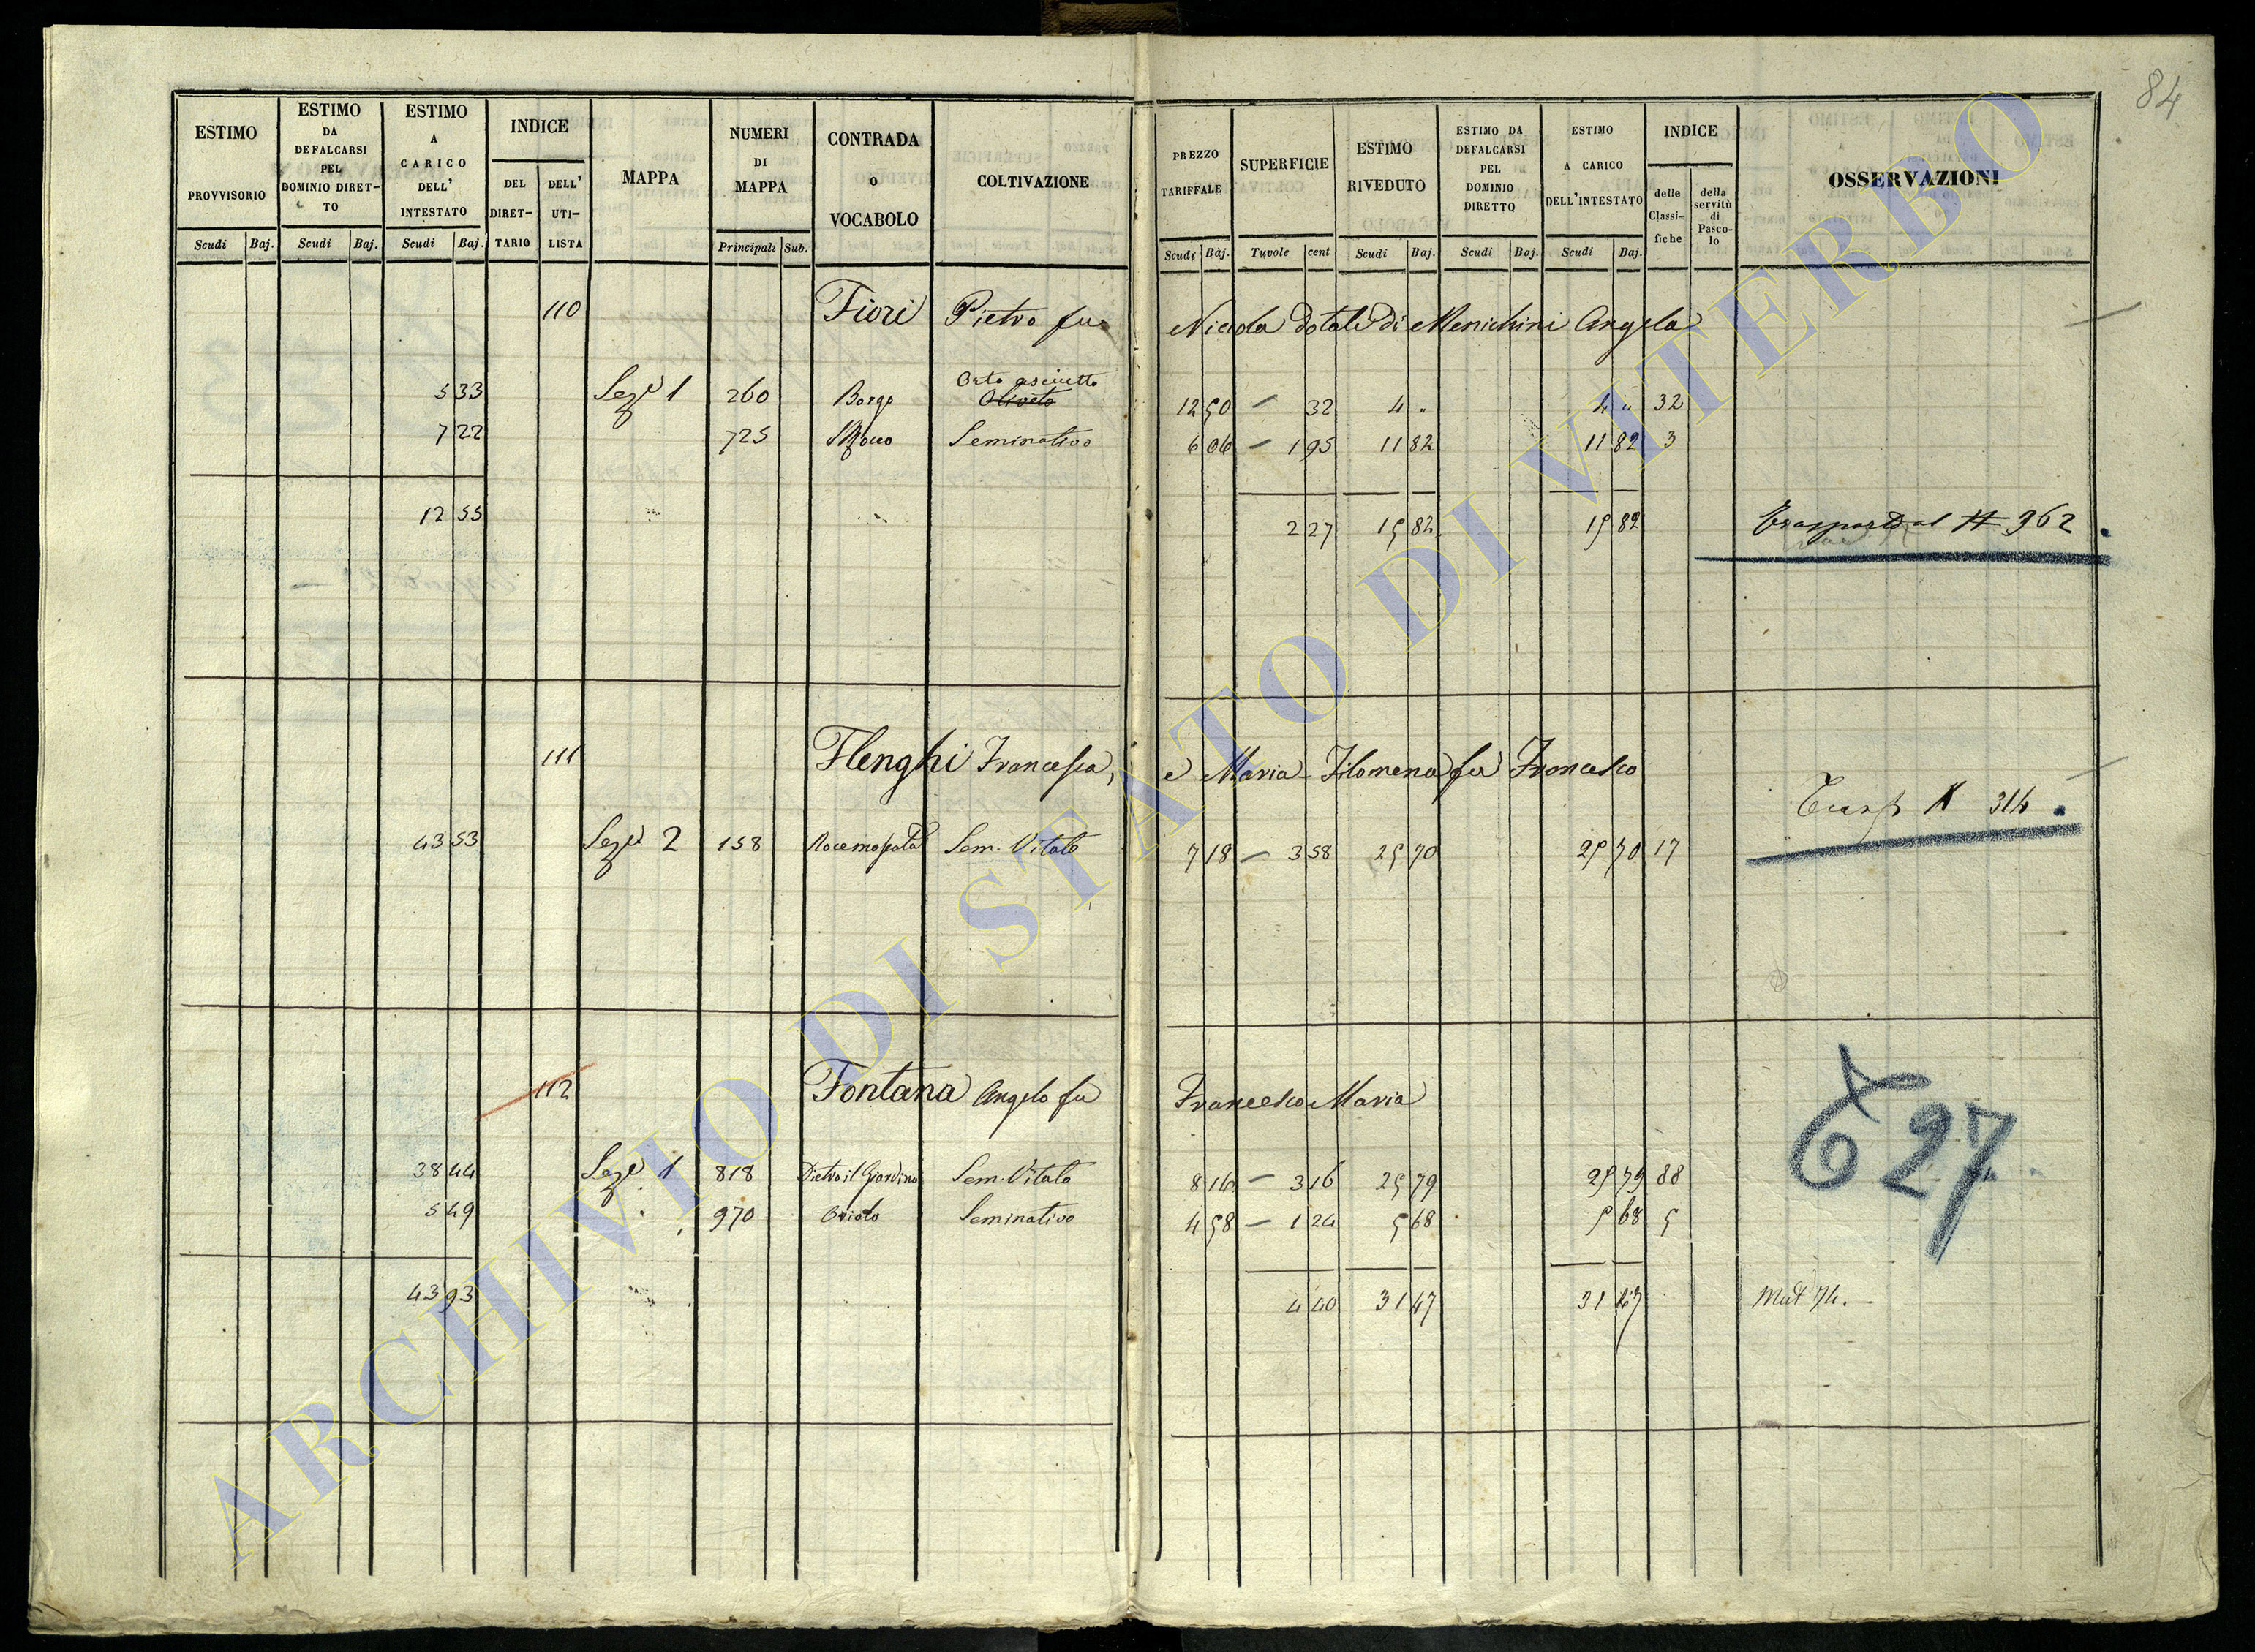 84
ESTIMO PROVVISORIO Scudi Baj.
ESTIMO DA DEFALCARSI PEL DOMINIO DIRET-TO Scudi Baj.
ESTIMO A CARICO DELL' INTESTATO Scudi Baj.
INDICE DEL DIRET-TARIO DELL' UTI-LISTA
MAPPA
NUMERI DI MAPPA Principali Sub.
CONTRADA O VOCABOLO
COLTIVAZIONE
PREZZO TARIFFALE Scudi Baj.
SUPERFICIE Tavole cent
ESTIMO RIVEDUTO Scudi Baj.
ESTIMO DA DEFALCARSI PEL DOMINIO DIRETTO Scudi Baj.
ESTIMO A CARICO DELL'INTESTATO Scudi Baj.
INDICE delle Classi-fiche della servitù di Pasco-lo
OSSERVAZIONI
110 Fiori Pietro fu Nicola dotale di Menichini Angela
Orto asciutto
5 33 Sez.e 1 260 Borgo Oliveto 12 50 – 32 4 " 4 " 32
7 22 725 S Rocco Seminativo 6 06 – 1 95 11 82 11 82 3
12 55 2 27 15 82 15 82 Trasporto al N 962
111 Flenghi Francesca, e Maria Filomena fu Francesco
Trasp N 314
43 53 Sez.e 2 158 Sem. Vitato 7 18 – 3 58 25 70 25 70 17
112 Fontana Angelo fu Francesco Maria
627
38 44 Sez.e 1 818 Dietro il Giardino Sem. Vitato 8 16 – 3 16 25 79 25 79 88
5 49 " " 970 Seminativo 4 58 – 1 24 5 68 5 68 5
43 93 4 40 31 47 31 47 Mut 74.
ARCHIVIO DI STATO DI VITERBO